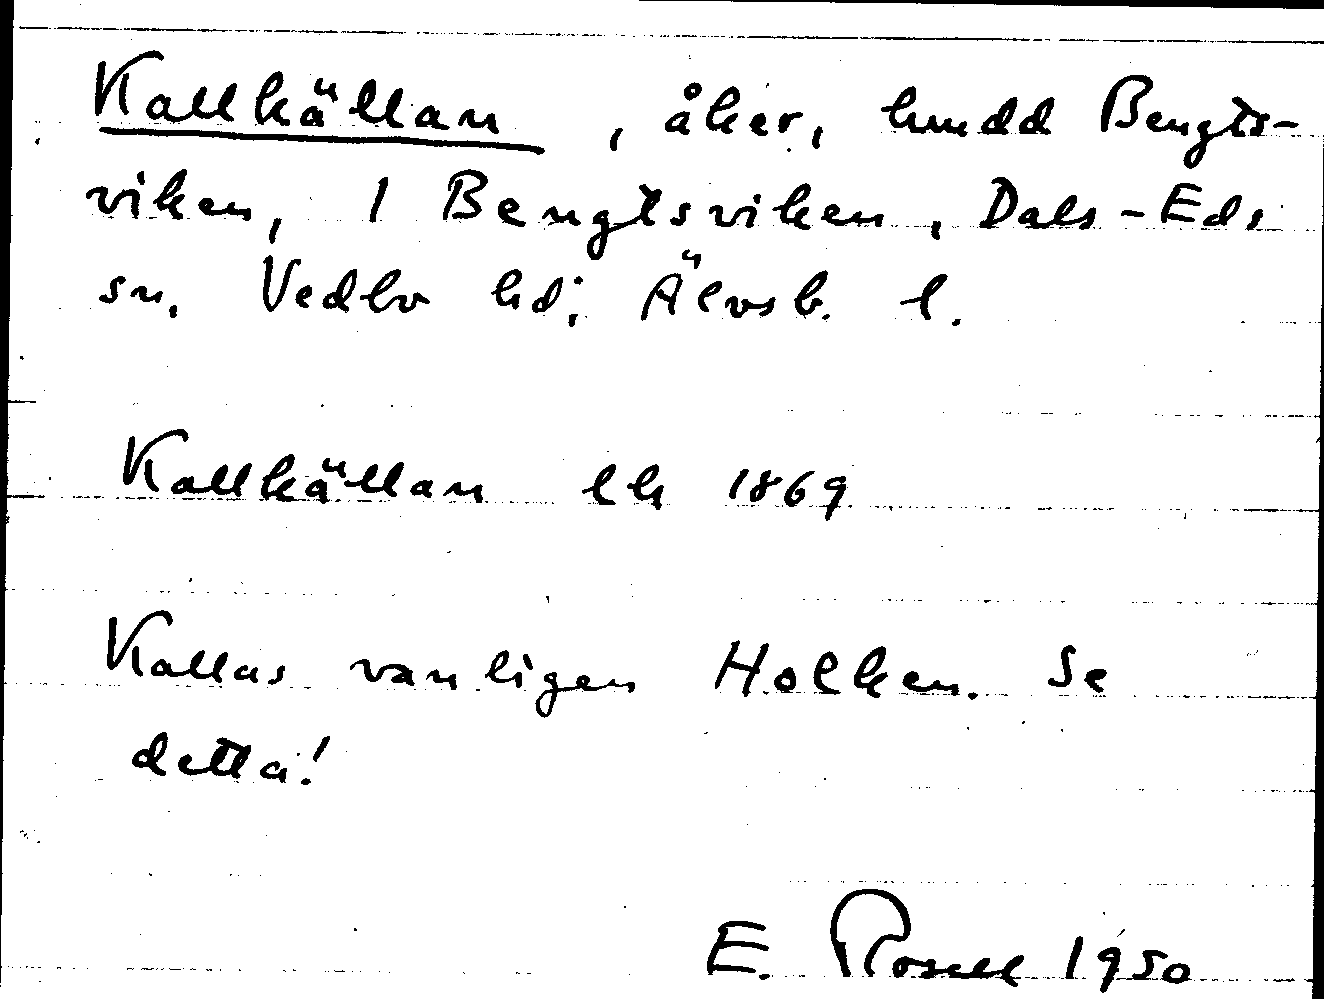 Kallkällan, åker, hmdd Bengts-
viken, 1 Bengtsviken, Dals-Eds
sn, Vedbo hd; Älvsb. l.
Kallkällan lh 1869
Kallas vanligen Holken. Se
detta!
E. Rosell 1950